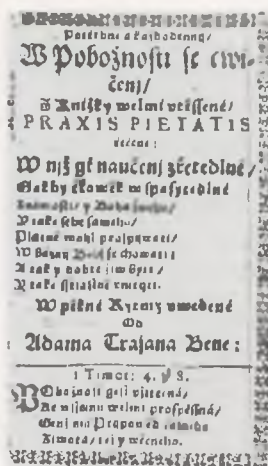 Potřebné a každodenný/
W Pobožnosti se cwi-
čenj/
Z Knižky welmi vtěssené/
PRAXIS PIETATIS
řečené:
W njž gest naučenj zřetedlné/
Gakby čłowěk w spasytedlné
Známosti/ y Boha swého/
Y také sebe samého/
Platně mohl prospjwati/
W Bázny Božj se chowati:
A tak y dobře žiw býti/
Y také sstiastně vmřjti.
W pěkné Rytmy uwedené
Od
Adama Trajana Bene:
1 Timot: 4. v 8.
POboznost gest vžitečná/
Ke wssemu welmi prospěssná/